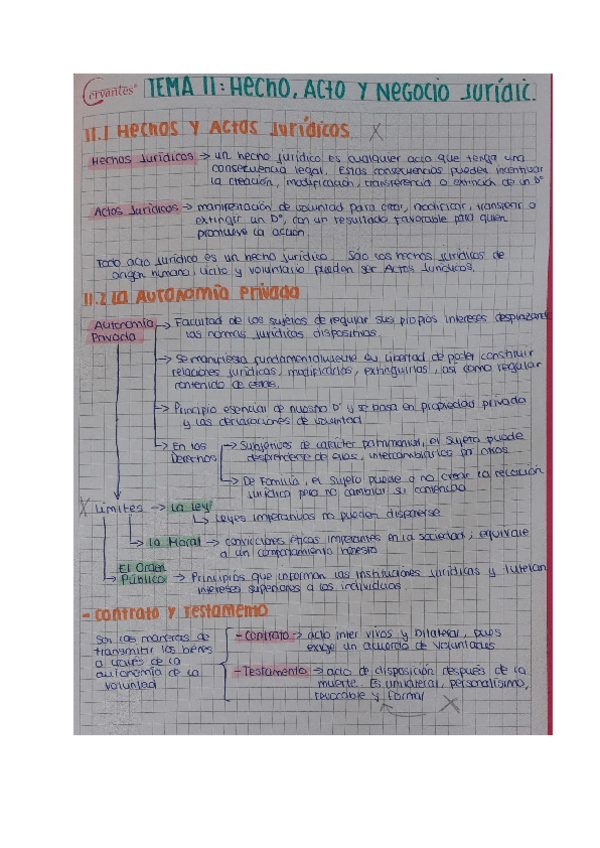 Cervantes
TEMA 11: Hecho, Acto y Negocio Jurídic.
11.1 Hechos y Actos Jurídicos X
Hechos Jurídicos → un hecho jurídico es cualquier acto que tenga una
consecuencia legal. Estas consecuencias pueden
la creación, modificación, transferencia o extinción de un Dº
Actos Jurídicos → manifestación de voluntad para crear, modificar, transferir o
extinguir un Dº, con un resultado favorable para quien
promueve la acción.
Todo acto jurídico es un hecho jurídico. Sólo los hechos jurídicos de
origen humano, lícito y voluntario pueden ser Actos Jurídicos.
11.2 La Autonomía Privada
Autonomía Privada → Facultad de los sujetos de regular sus propios intereses desplazando
las normas jurídicas dispositivas.
→ Se manifiesta fundamentalmente su libertad de poder construir
relaciones jurídicas, modificarlas, extinguirlas, así como regular
contenido de ellas.
→ Principio esencial de nuestro Dº y se basa en propiedad privada
y las declaraciones de voluntad
→ En los Derechos → Subjetivos de carácter patrimonial, el sujeto puede
desprenderse de ellos, intercambiarlos por otros
→ De Familia, el sujeto puede o no crear la relación
jurídica pero no cambiar su contenido
X Límites → La Ley
↳ Leyes imperativas no pueden disponerse
→ La Moral → convicciones éticas imperantes en la sociedad; equivale
a un comportamiento honesto
→ El Orden Público → Principios que informan las instituciones jurídicas y tutelan
intereses superiores a los individuos.
- Contrato y Testamento
Son las maneras de
transmitir los bienes
a través de la
autonomía de la
voluntad
- Contrato → acto inter vivos y bilateral, pues
exige un acuerdo de voluntades
- Testamento → acto de disposición después de la
muerte. Es unilateral, personalísimo,
revocable y formal X